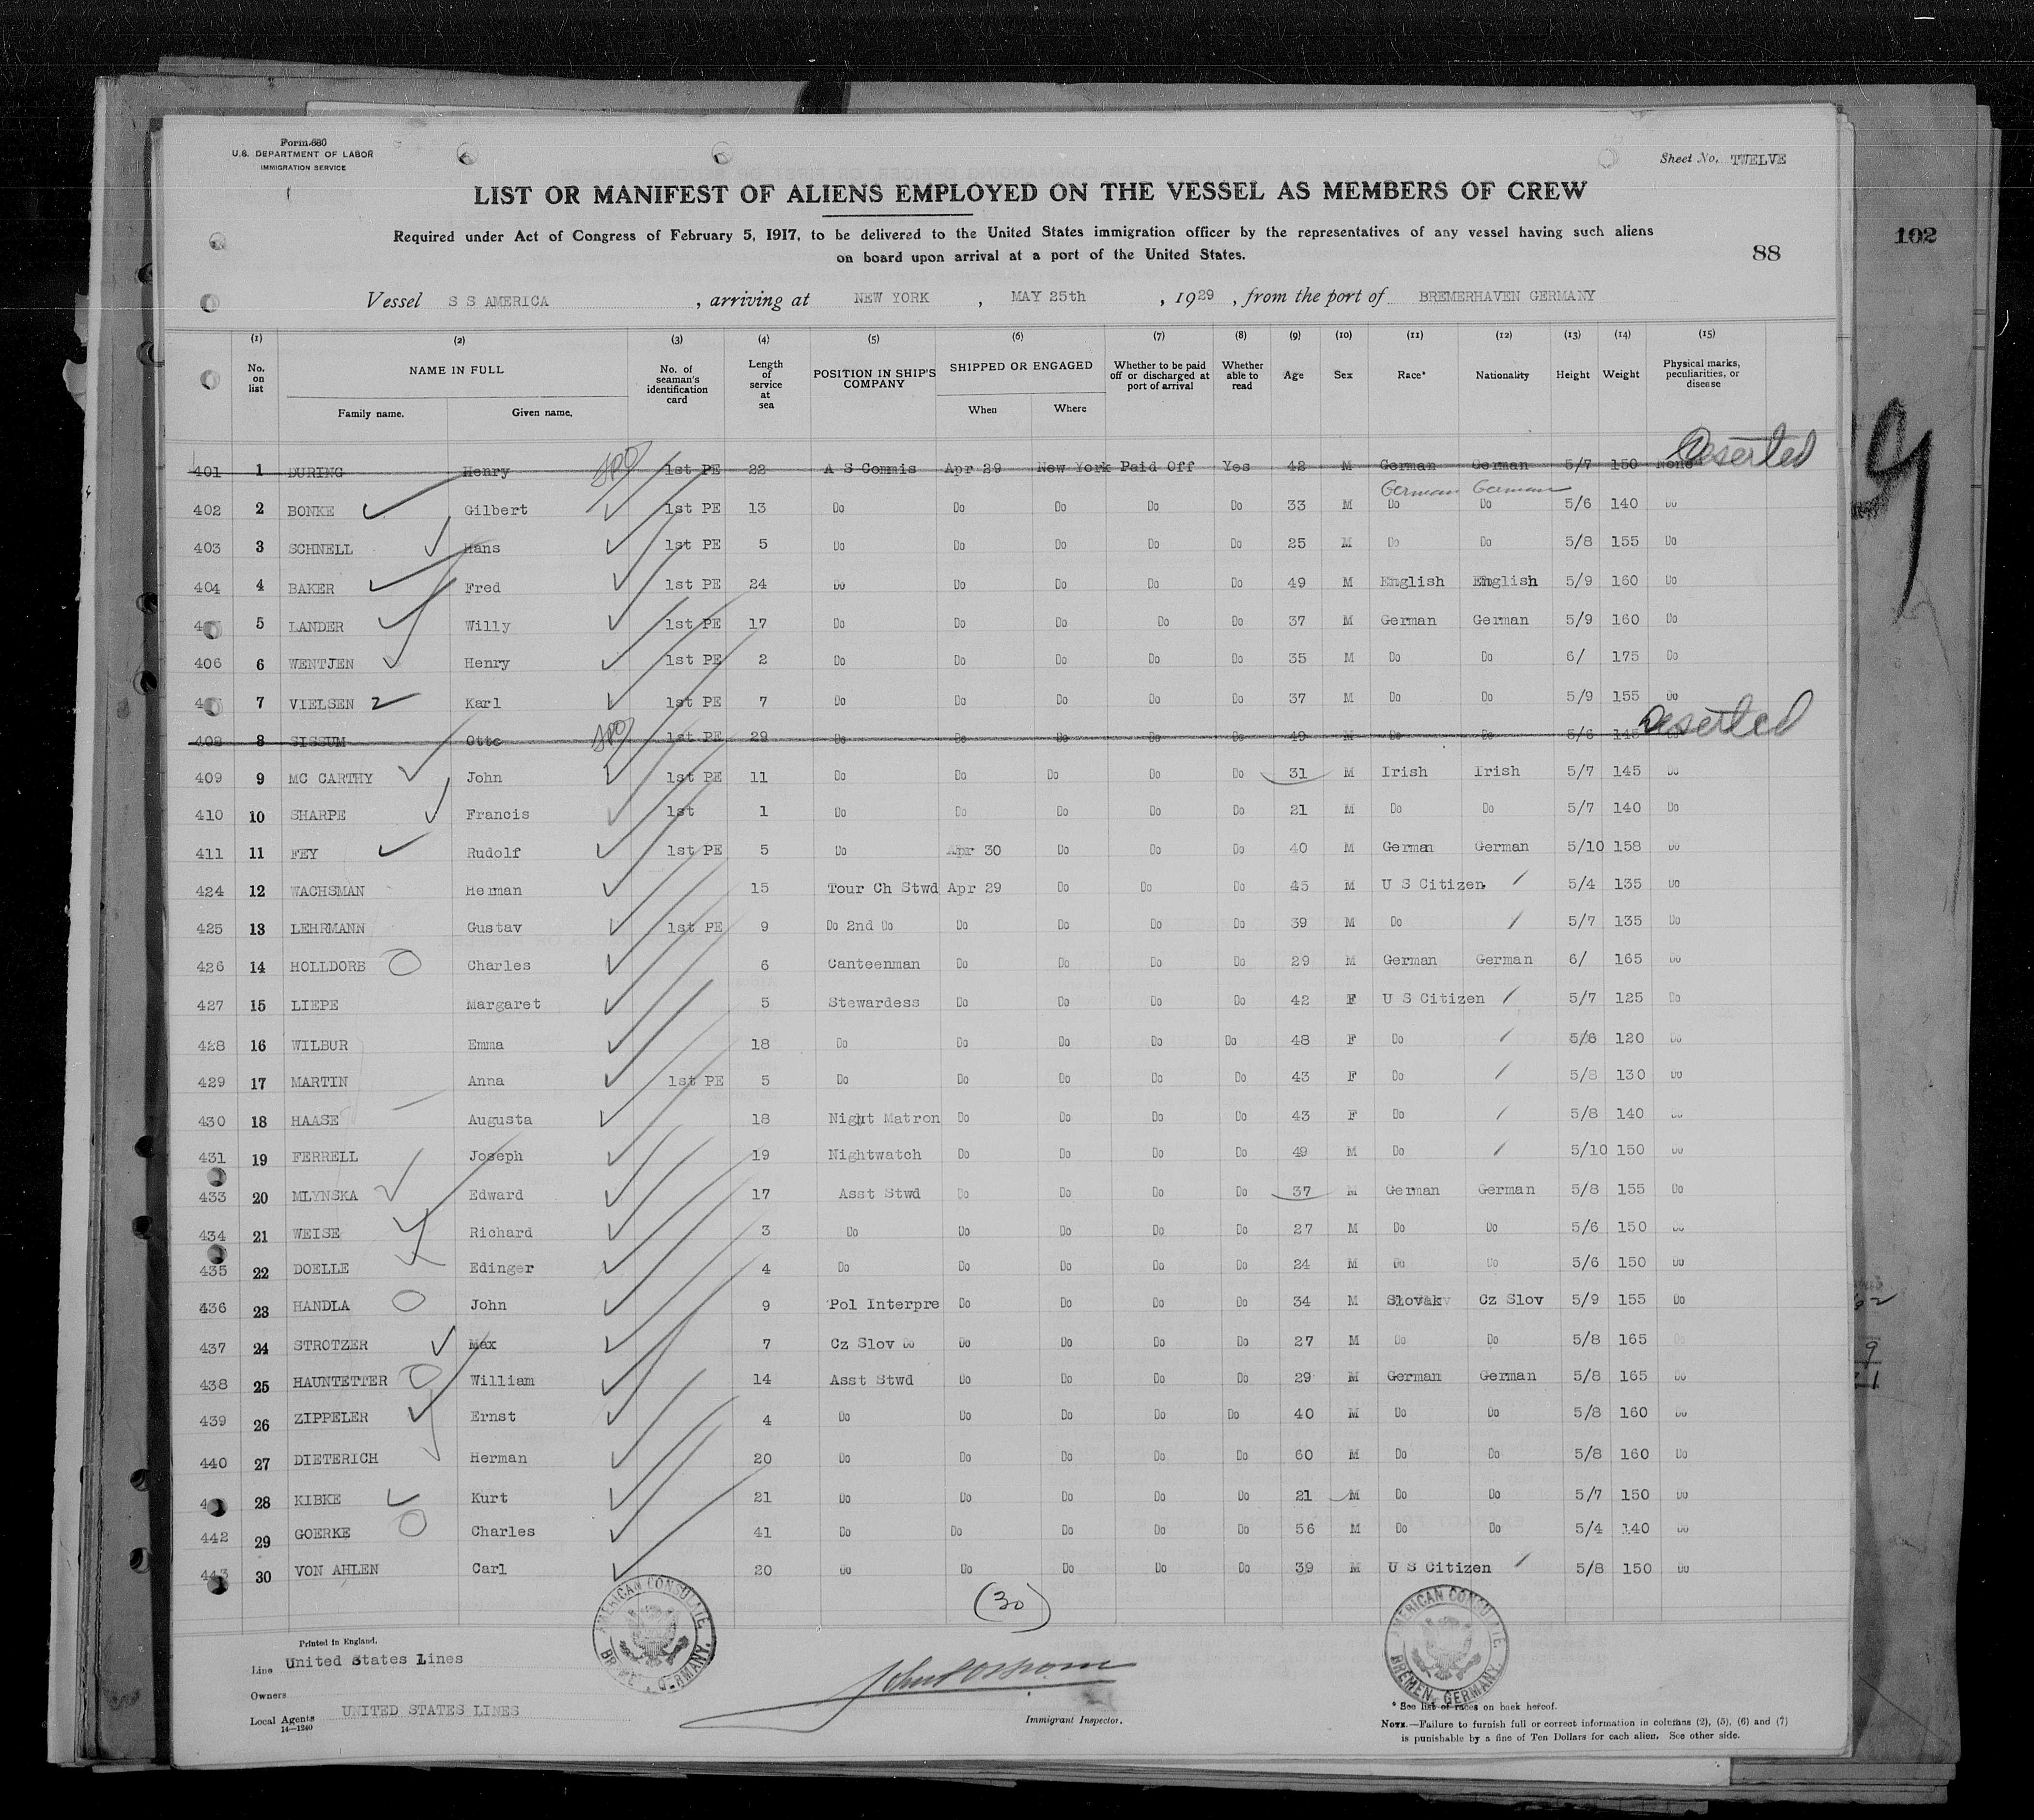 Form 680
U.S. DEPARTMENT OF LABOR
IMMIGRATION SERVICE
Sheet No. TWELVE
LIST OR MANIFEST OF ALIENS EMPLOYED ON THE VESSEL AS MEMBERS OF CREW
Required under Act of Congress of February 5, 1917, to be delivered to the United States immigration officer by the representatives of any vessel having such aliens
on board upon arrival at a port of the United States.
88
102
Vessel S S AMERICA , arriving at NEW YORK , MAY 25th , 1929 , from the port of BREMERHAVEN GERMANY
(1) (2) (3) (4) (5) (6) (7) (8) (9) (10) (11) (12) (13) (14) (15)
No. on list NAME IN FULL Family name. Given name. No. of seaman's identification card Length of service at sea POSITION IN SHIP'S COMPANY SHIPPED OR ENGAGED When Where Whether to be paid off or discharged at port of arrival Whether able to read Age Sex Race* Nationality Height Weight Physical marks, peculiarities, or disease
401 1 DURING Henry 1st PE 22 A S Commis Apr 29 New York Paid Off Yes 42 M German German 5/7 150 None Deserted
German German
402 2 BONKE Gilbert 1st PE 13 Do Do Do Do Do 33 M Do Do 5/6 140 Do
403 3 SCHNELL Hans 1st PE 5 Do Do Do Do Do 25 M Do Do 5/8 155 Do
404 4 BAKER Fred 1st PE 24 Do Do Do Do Do 49 M English English 5/9 160 Do
5 LANDER Willy 1st PE 17 Do Do Do Do Do 37 M German German 5/9 160 Do
406 6 WENTJEN Henry 1st PE 2 Do Do Do Do Do 35 M Do Do 6/ 175 Do
7 VIELSEN Karl 1st PE 7 Do Do Do Do Do 37 M Do Do 5/9 155 Do
408 8 SISSUM Otto 1st PE 29 Do Do Do Do Do 49 M Do Do 5/6 145 Deserted
409 9 MC CARTHY John 1st PE 11 Do Do Do Do Do 31 M Irish Irish 5/7 145 Do
410 10 SHARPE Francis 1st 1 Do Do Do Do Do 21 M Do Do 5/7 140 Do
411 11 FEY Rudolf 1st PE 5 Do Apr 30 Do Do Do 40 M German German 5/10 158 Do
424 12 WACHSMAN Herman 15 Tour Ch Stwd Apr 29 Do Do Do 45 M U S Citizen 5/4 135 Do
425 13 LEHRMANN Gustav 1st PE 9 Do 2nd Do Do Do Do Do 39 M Do 5/7 135 Do
426 14 HOLLDORB Charles 6 Canteenman Do Do Do Do 29 M German German 6/ 165 Do
427 15 LIEPE Margaret 5 Stewardess Do Do Do Do 42 F U S Citizen 5/7 125 Do
428 16 WILBUR Emma 18 Do Do Do Do Do 48 F Do 5/6 120 Do
429 17 MARTIN Anna 1st PE 5 Do Do Do Do Do 43 F Do 5/8 130 Do
430 18 HAASE Augusta 18 Night Matron Do Do Do Do 43 F Do 5/8 140 Do
431 19 FERRELL Joseph 19 Nightwatch Do Do Do Do 49 M Do 5/10 150 Do
433 20 MLYNSKA Edward 17 Asst Stwd Do Do Do Do 37 M German German 5/8 155 Do
434 21 WEISE Richard 3 Do Do Do Do Do 27 M Do Do 5/6 150 Do
435 22 DOELLE Edinger 4 Do Do Do Do Do 24 M Do Do 5/6 150 Do
436 23 HANDLA John 9 Pol Interpre Do Do Do Do 34 M Slovak Cz Slov 5/9 155 Do
437 24 STROTZER Max 7 Cz Slov Do Do Do Do Do 27 M Do Do 5/8 165 Do
438 25 HAUNTETTER William 14 Asst Stwd Do Do Do Do 29 M German German 5/8 165 Do
439 26 ZIPPELER Ernst 4 Do Do Do Do Do 40 M Do Do 5/8 160 Do
440 27 DIETERICH Herman 20 Do Do Do Do Do 60 M Do Do 5/8 160 Do
28 KIBKE Kurt 21 Do Do Do Do Do 21 M Do Do 5/7 150 Do
442 29 GOERKE Charles 41 Do Do Do Do Do 56 M Do Do 5/4 140 Do
443 30 VON AHLEN Carl 20 Do Do Do Do Do 39 M U S Citizen 5/8 150 Do
(30)
AMERICAN CONSULATE, BREMEN, GERMANY.
AMERICAN CONSULATE, BREMEN, GERMANY.
Printed in England.
Line United States Lines
Owners
Local Agents UNITED STATES LINES
14—1240
Immigrant Inspector.
* See list of races on back hereof.
NOTE.—Failure to furnish full or correct information in columns (2), (5), (6) and (7)
is punishable by a fine of Ten Dollars for each alien. See other side.